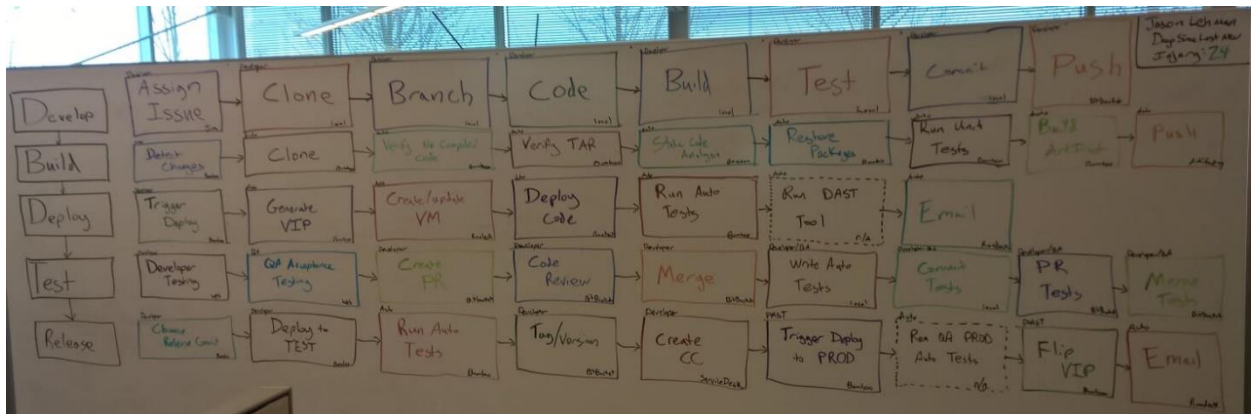 Develop
Build
Deploy
Test
Release
Assign
Issue
Developer
Clone
Local
Developer
Branch
Local
Developer
Code
Local
Developer
Build
Local
Developer
Test
Local
Developer
Commit
Local
Push
BitBucket
Jason Lehman
Detect
Changes
Auto
Clone
Bamboo
Auto
Verify No Compiled
Code
Bamboo
Auto
Verify TAR
Bamboo
Auto
Static Code
Analysis
Bamboo
Auto
Restore
Packages
Bamboo
Auto
Run Unit
Tests
Bamboo
Auto
Build
Auto
Push
Trigger
Deploy
Bamboo
Generate
VIP
Bamboo
Auto
Create/update
VM
Auto
Deploy
Code
Auto
Run Auto
Tests
Bamboo
Auto
Run DAST
Tool
n/a
Auto
Email
Developer
Testing
QA
QA Acceptance
Testing
Developer
Create
PR
BitBucket
Developer
Code
Review
BitBucket
Developer
Merge
BitBucket
Developer/QA
Write Auto
Tests
Local
Developer/QA
Commit
Tests
Local
Developer/QA
PR
Tests
BitBucket
Developer/QA
Merge
Tests
BitBucket
Choose
Release
Developer
Deploy to
TEST
Bamboo
Auto
Run Auto
Tests
Bamboo
Developer
Tag/Version
BitBucket
Developer
Create
CC
ServiceDesk
Trigger Deploy
to PROD
Bamboo
Auto
Run QA PROD
Auto Tests
n/a
Flip
VIP
Bamboo
Auto
Email